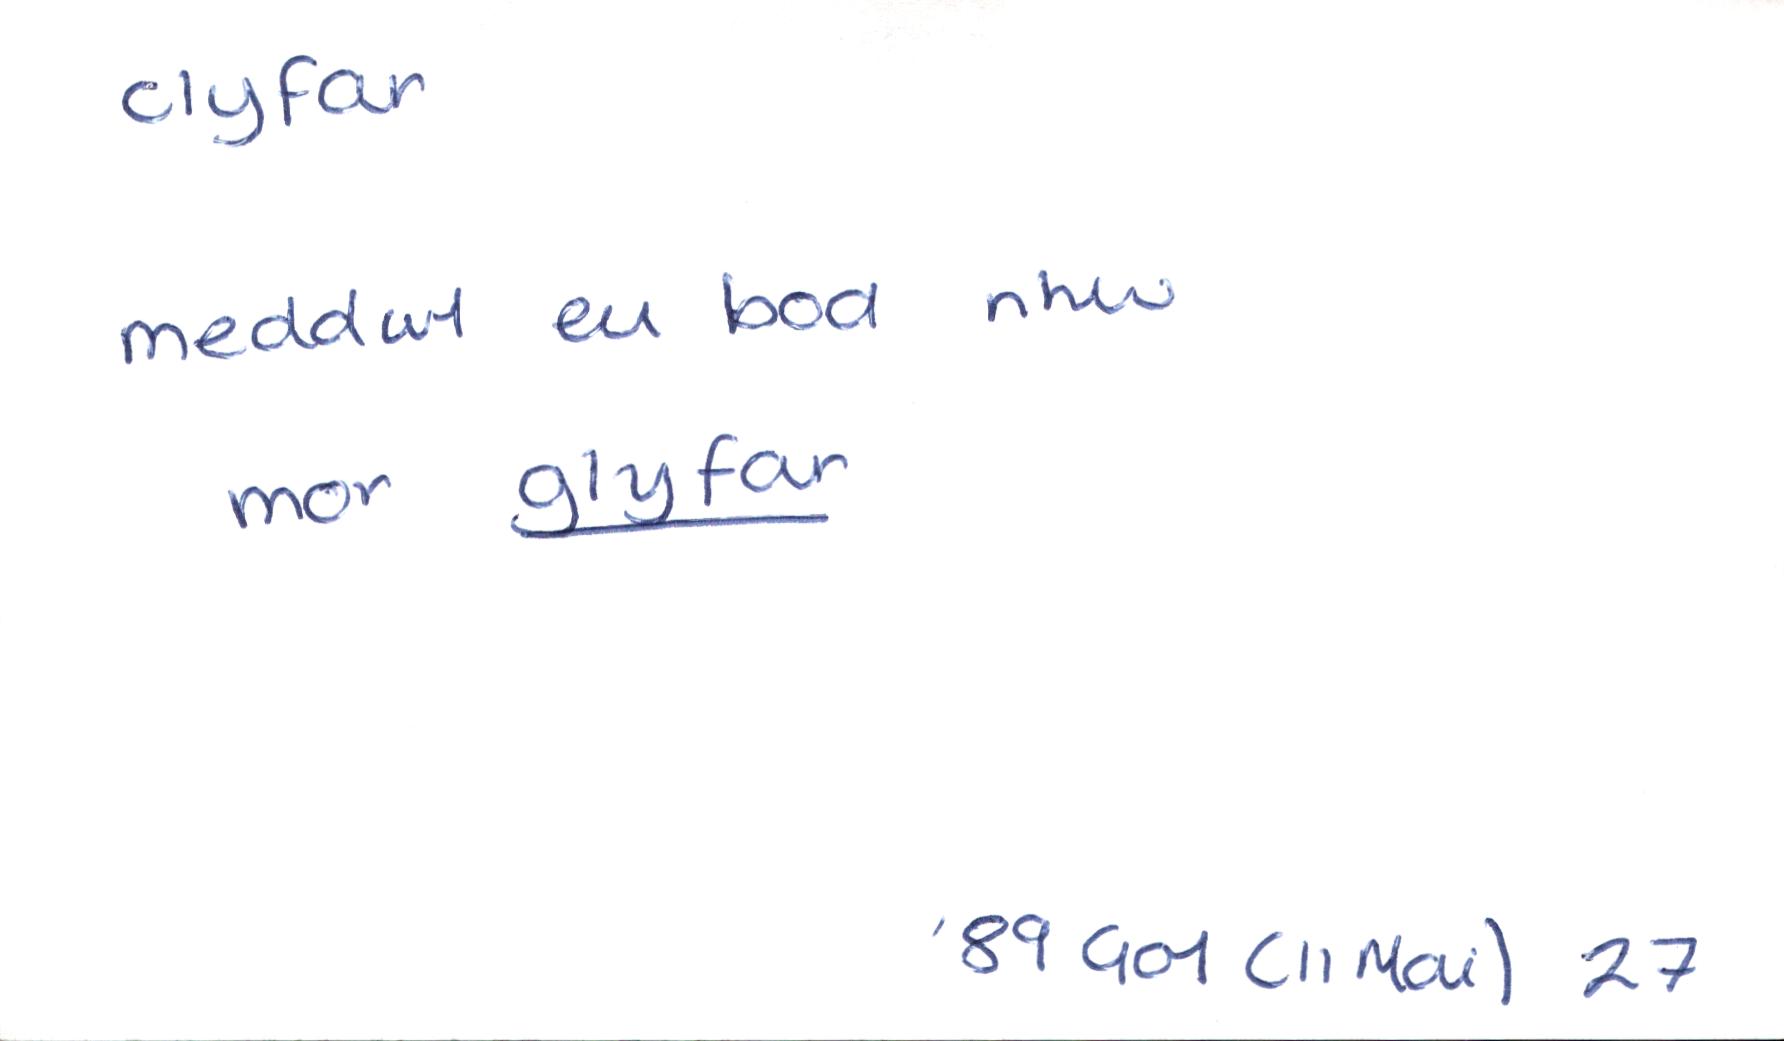 clyfar
meddwl eu bod nhw
mor glyfar
'89 Gol (11 Mai) 27